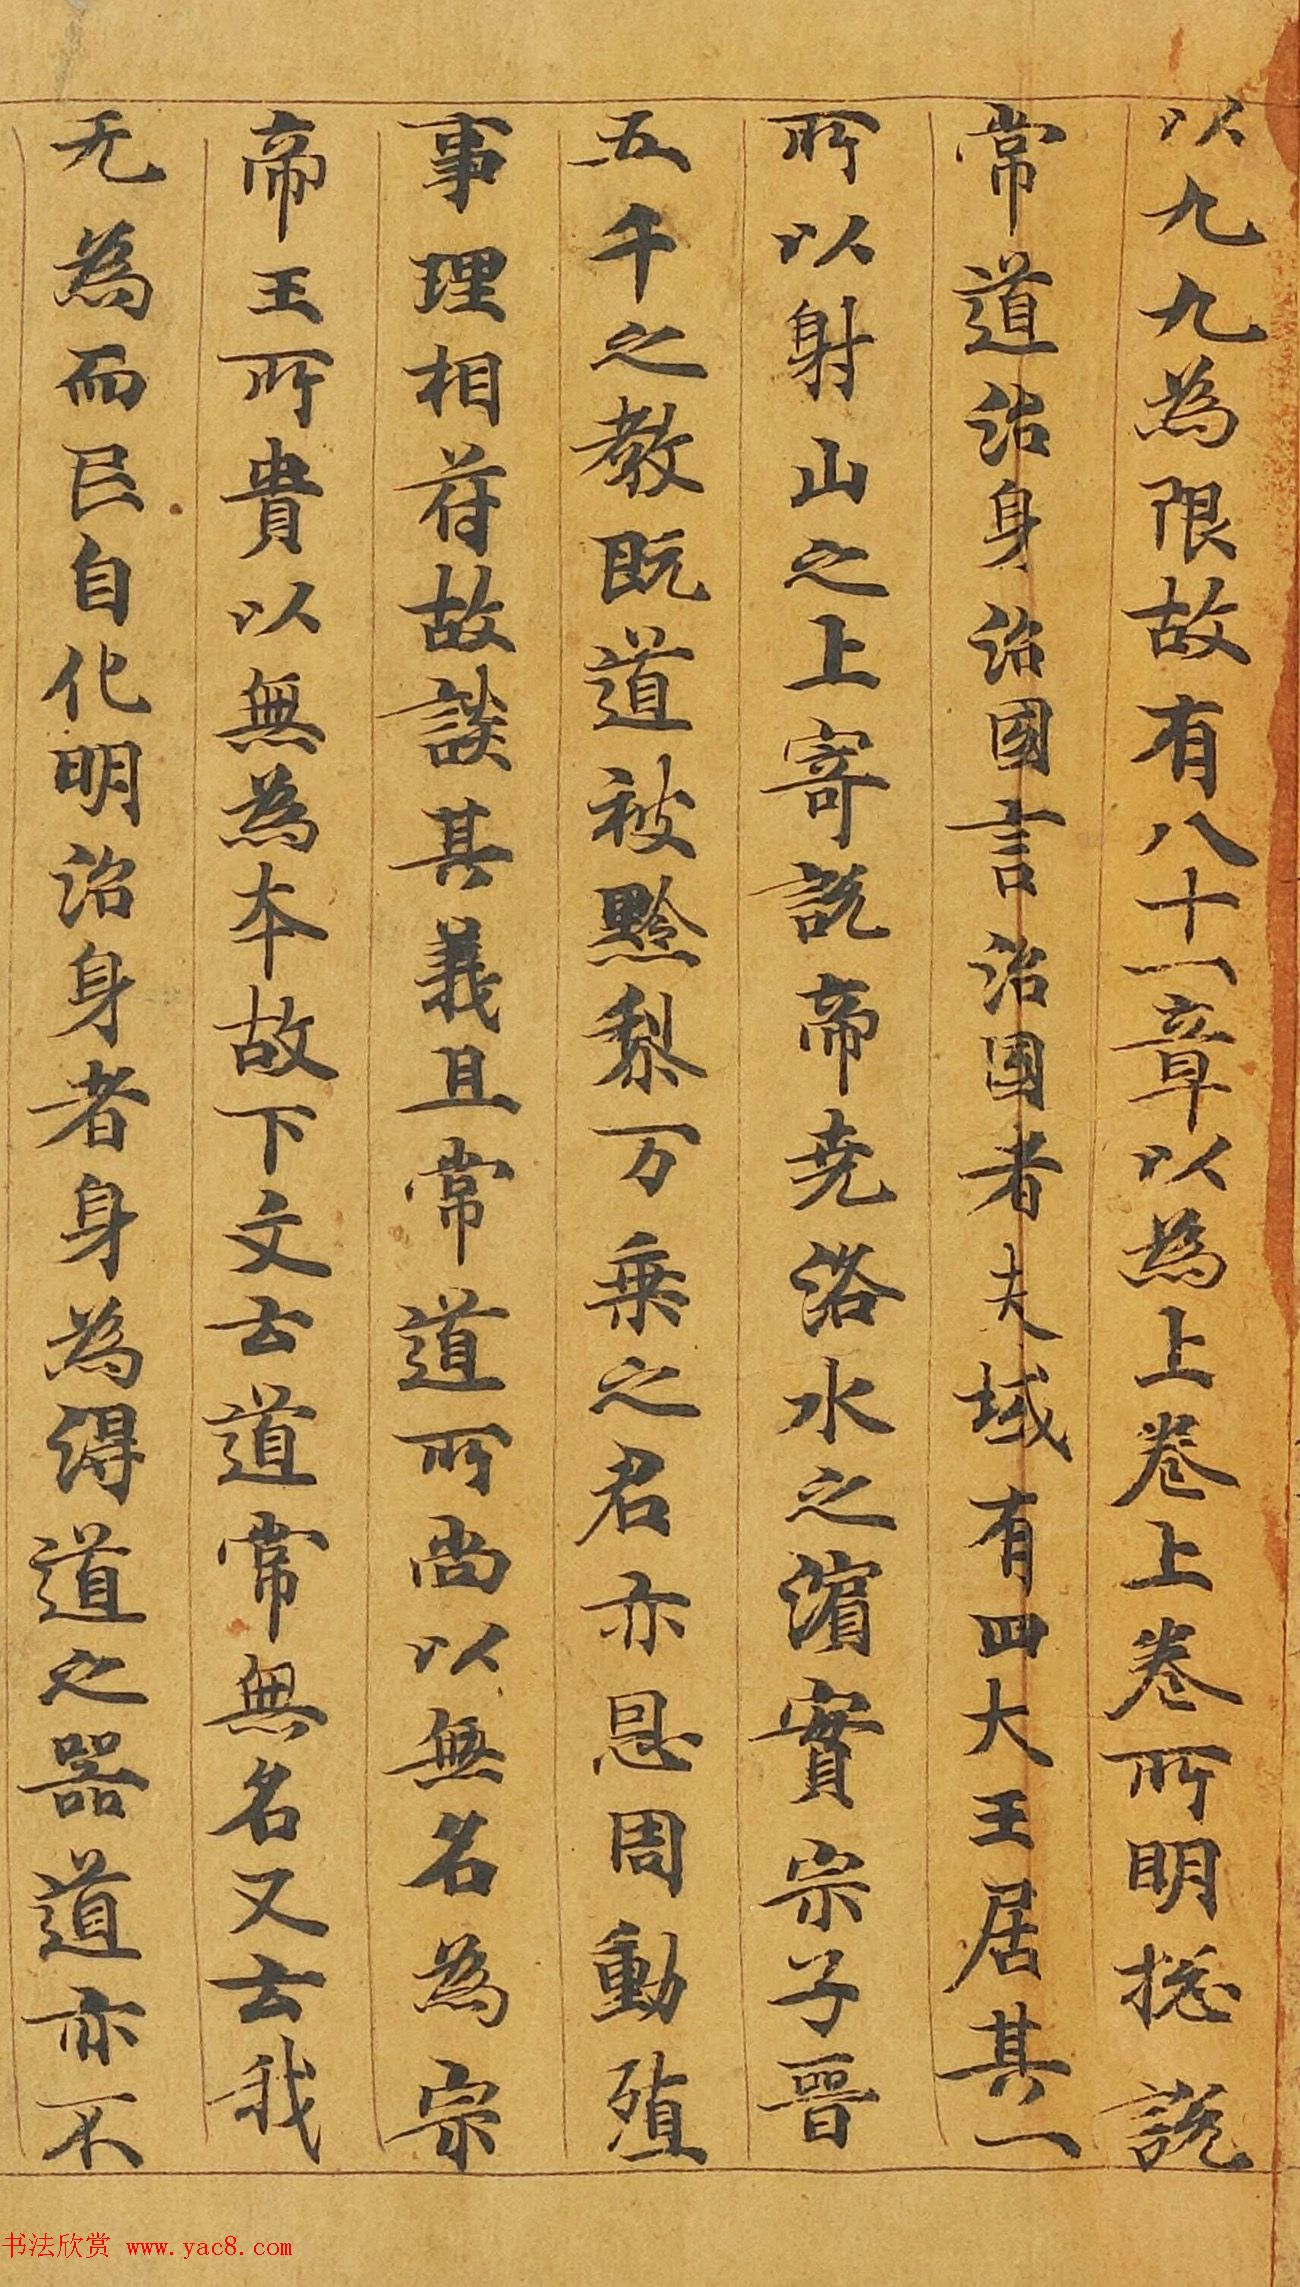 以九九為限故有八十一章以為上卷上卷所明捴說
常道治身治國言治國者夫域有四大王居其一
所以射山之上寄説帝尭洛水之濵實宗子晋
五千之教既道被黔黎万乗之君亦恩周動殖
事理相符故談其義且常道所尚以無名為宗
帝王所貴以無為本故下文云道常無名又云我
无為而巳自化明治身者身為得道之器道亦不
书法欣赏 www.yac8.com